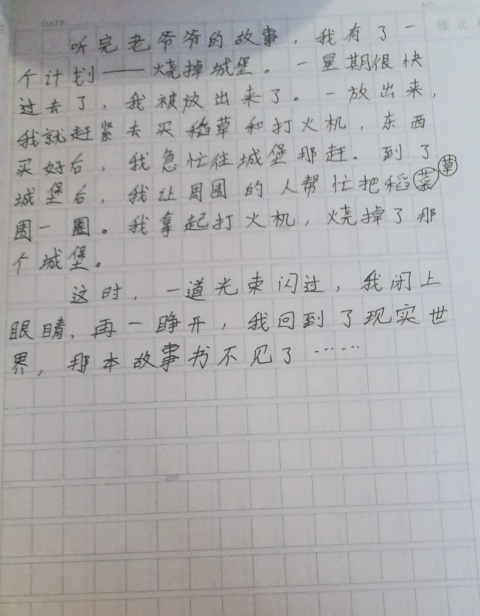 听完老爷爷的故事，我有了一
个计划——烧掉城堡。一星期很快
过去了，我被放出来了。一放出来，
我就赶紧去买稻草和打火机，东西
买好后，我急忙往城堡那赶。到了
城堡后，我让周围的人帮忙把稻草
围一圈。我拿起打火机，烧掉了那
个城堡。
这时，一道光束闪过，我闭上
眼睛，再一睁开，我回到了现实世
界，那本故事书不见了……